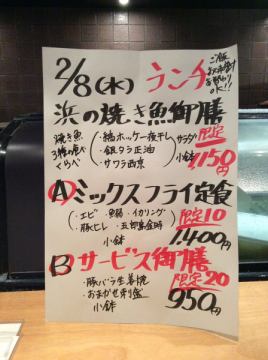 2/8(木) ランチ
ご飯
お味噌汁
お替わり
OK!!
浜の焼き魚御膳
焼き魚
3種の食べ
くらべ
・縞ホッケ一夜干し
・銀ダラ正油
・サワラ西京
サラダ
小鉢
限定
1,150円
Ⓐミックスフライ定食
(・エビ・魚貂・イカリング
・豚ヒレ・五郎島金時)
小鉢
限定10
1,400円
Ⓑサービス御膳
限定20
・豚バラ生姜焼
・おまかせ刺盛
小鉢
950円